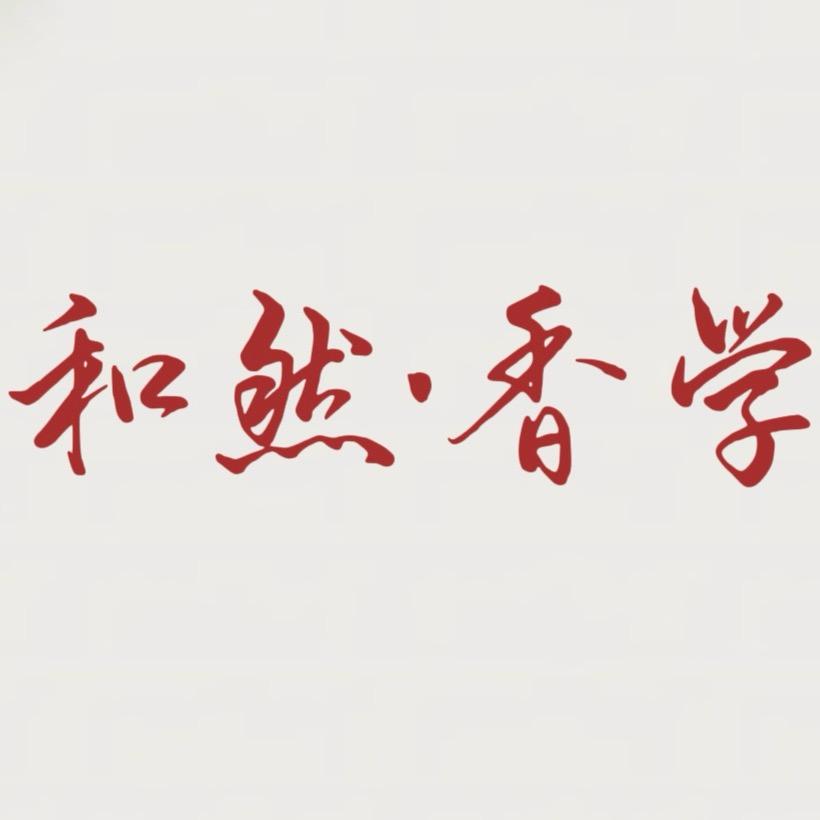 和然·香学